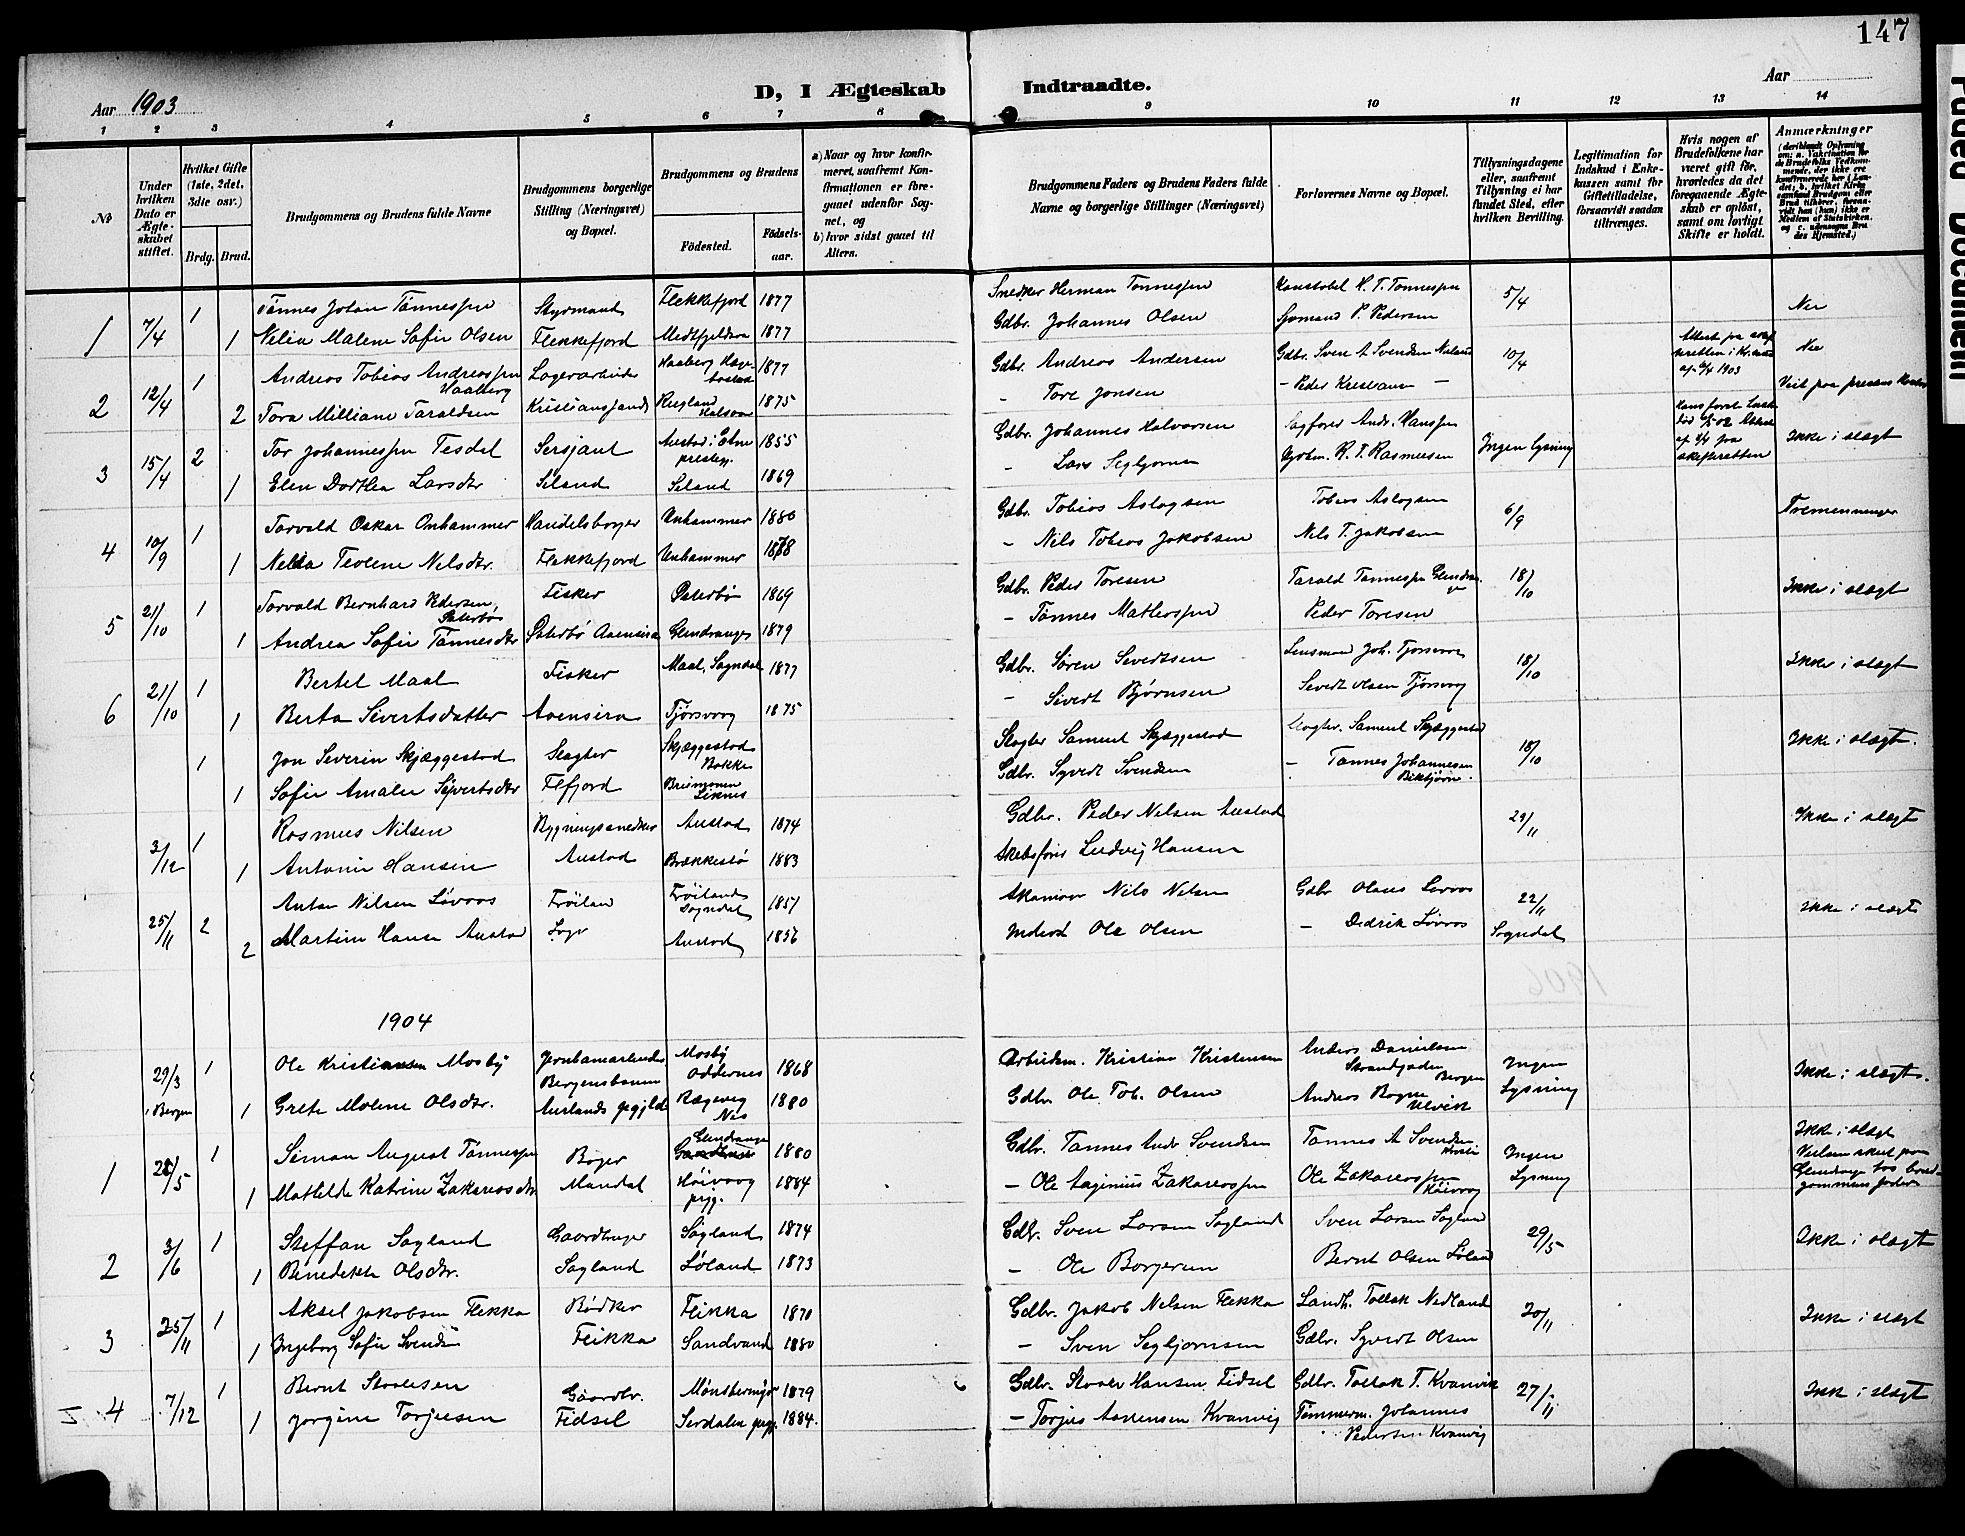 147
Faded Document
D, I Ægteskab Indtraadte.
Aar 1903
Aar
1 2 3 4 5 6 7 8 9 10 11 12 13 14
No
Under hvilken Dato er Ægteskabet stiftet.
Hvilket Gifte (1ste, 2det, 3die osv.)
Brdg. Brud.
Brudgommens og Brudens fulde Navne
Brudgommens borgerlige Stilling (Næringsvei) og Bopæl.
Brudgommens og Brudens
Fødested.
Fødsels-aar.
a) Naar og hvor konfirmeret, saafremt Konfirmationen er foregaaet udenfor Sognet, og
b) hvor sidst gaaet til Alters.
Brudgommens Faders og Brudens Faders fulde Navne og borgerlige Stillinger (Næringsvei)
Forlovernes Navne og Bopæl.
Tillysningsdagene eller, saafremt Tillysning ei har fundet Sted, efter hvilken Bevilling.
Legitimation for Indskud i Enkekassen samt for Giftetilladelse, forsaavidt saadan tiltrænges.
Hvis nogen af Brudefolkene har været gift før, hvorledes da det foregaaende Ægteskab er opløst, samt om lovligt Skifte er holdt.
Anmærkninger
1 7/4 1 Tønnes Johan Tønnessen Styrmand Flekkefjord 1877 Snedker Herman Tønnessen Konstabel H. T. Tønnessen 5/4 Nei
1 Nelia Malene Sofie Olsen Flekkefjord 1877 Gdbr. Johannes Olsen Sjømand P. Pedersen
2 12/4 1 Andreas Tobias Andreassen Haaberg Lagerarbeider Haaberg 1877 Gdbr. Andreas Andersen Gdbr. Sven A Svendsen 10/4 Nei
2 Tora Milliane Taraldsen Kristianssand 1875 - Tore Jonsen - Peder Kristiansen -
3 15/4 2 Tor Johannessen Tesdal Sersjant 1855 Gdbr. Johannes Halvorsen Sagfører Andr. Hanssen Ingen lysning Ikke i slægt
1 Elen Dorthea Larsdtr Siland Siland 1869 - Lars Segbjørnsen R. T. Rasmussen
4 10/9 1 Torvald Oskar Onhammer Handelsborger Unhammer 1880 Gdbr. Tobias Aslagsen Tobias Aslagsen 6/9 Tremenninger
1 Teoline Nelsdtr. Flekkefjord Unhammer 1878 - Nils Tobias Jakobsen Nils T. Jakobsen
5 21/10 1 Torvald Bernhard Pedersen, Paterbø Fisker Paterbø 1869 Gdbr. Peder Toresen Tarald Tønnessen 18/10 Ikke i slægt
1 Andrea Sofie Tønnesdtr Paterbø Aaensira Glendrange 1879 - Tønnes Mathiassen Peder Toresen
6 21/10 1 Bertel Maal Fisker Maal, Sogndal 1877 Gdbr. Søren Sevedtsen Lensmand Joh. Tjørsvaag 18/10 Ikke i slægt
1 Berta Sivertsdatter Aaensira Tjørsvaag 1875 - Sivert Bjørnsen Sivedt Olsen Tjørsvaag
1 Jon Severin Skjæggestad Slagter Skjæggestad Bakke Slagter Samuel Skjæggestad Slagter. Samuel Skjæggestad 18/10 Ikke i slægt.
1 Sofie Amalie Sivertsdtr Flfjord Gdbr. Syvert Svendsen - Tønnes Johannesen
3/12 1 Rasmus Nilsen Bygningssnedker Austad 1874 Gdbr. Peder Nilsen Austad 29/11 Ikke i slægt
1 Antonie Hansen Austad Brækkestø 1883 Ludvig Hansen
25/11 2 Anton Nilsen Løvaas Frøiland Frøiland Sogndal 1851 Nils Nilsen Gdbr Olaus Løvaas 22/11 Ikke i slægt
2 Martine Hanse Austad Sogn Austad 1856 Inderst Ole Olsen - Didrik Løvaas Sogndal
1904
29/3 i Bergen 1 Ole Kristiansen Mosby Bergensbanen Mosby Oddernes 1868 Arbeidsm. Kristian Kristensen Anders Danielsen Strandgaden Bergen Ingen Lysning Ikke i slægt.
1 Grete Malene Olsdtr. Aurlands Rægevig Nes 1880 Gdbr Ole Tob. Olsen Andreas Ulvik
1 28/5 1 Simon August Tønnessen Bager Glendrange 1880 Gdbr. Tønnes Andr Svendsen Tønnes A Svendsen Ingen Lysning Ikke i slægt
1 Mathilde Katrine Zakariasdtr Mandal Høivaag 1884 - Ole Zakariassen Ole Zakariassen Høivaag
2 3/6 1 Steffan Søyland Gaardbruger Søyland 1874 Gdbr. Sven Larsen Søyland Sven Larsen Søyland 29/5 Ikke i slægt
1 Benedikte Olsdtr. Søyland Løland 1873 - Ole Borgersen Bernt Olsen Løland
3 25/11 1 Aksel Jakobsen Flikka Bødker Flikka 1870 Gdbr. Jakob Nilsen Flikka Landh. Tollak Nedland 20/11 Ikke i slægt
1 Ingeborg Sofie Svendsen Flikka Sandvand 1880 - Sven Segbjørnsen Gdbr. Syvert Olsen
4 7/12 1 Bernt Staalesen Gaardbr. 1879 Gdbr. Staale Hansen Fidsel Gdbr. Tollak T. Kvanvik 27/11 Ikke i slægt
1 Jørgine Torjusen Fidsel Sirdalen 1884. - Torjus Aasensen Kvanvig Tømmerm. Johannes Pedersen Kvanvig